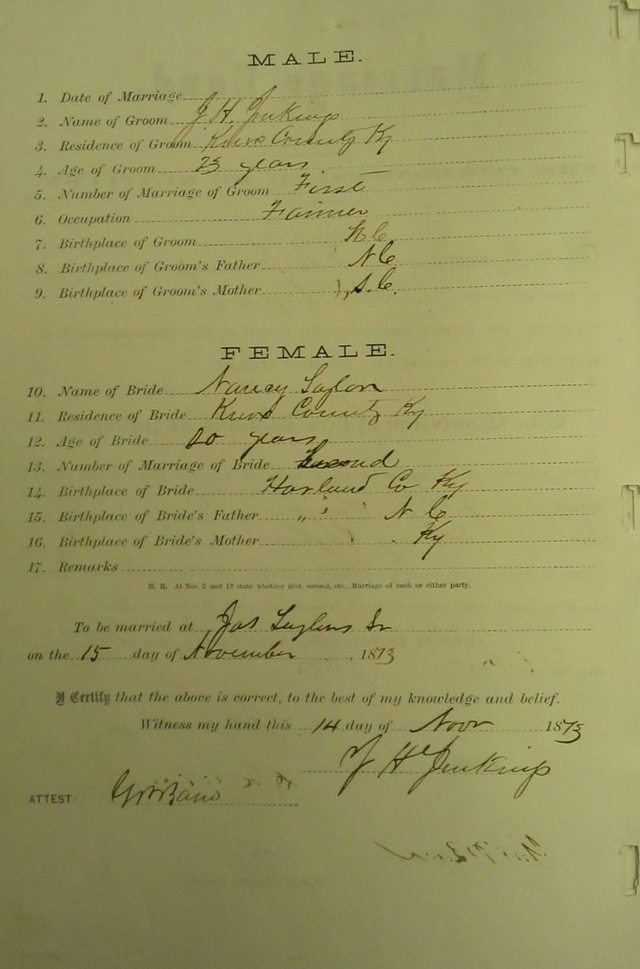 MALE.
1. Date of Marriage
2. Name of Groom J H Jenkins
3. Residence of Groom Knox County Ky
4. Age of Groom 23 years
5. Number of Marriage of Groom First
6. Occupation Farmer
7. Birthplace of Groom N C
8. Birthplace of Groom's Father N C
9. Birthplace of Groom's Mother S. C.
FEMALE.
10. Name of Bride Nancy Saylor
11. Residence of Bride Knox County Ky
12. Age of Bride 20 years
13. Number of Marriage of Bride Second
14. Birthplace of Bride Harland Co Ky
15. Birthplace of Bride's Father " N C
16. Birthplace of Bride's Mother Ky
17. Remarks
N. B. At Nos. 5 and 13 state whether first, second, etc., Marriage of each or either party.
To be married at Jas Saylors Sr
on the 15 day of November, 1873
I Certify that the above is correct, to the best of my knowledge and belief.
Witness my hand this 14 day of Novr 1873
J H Jenkins
ATTEST